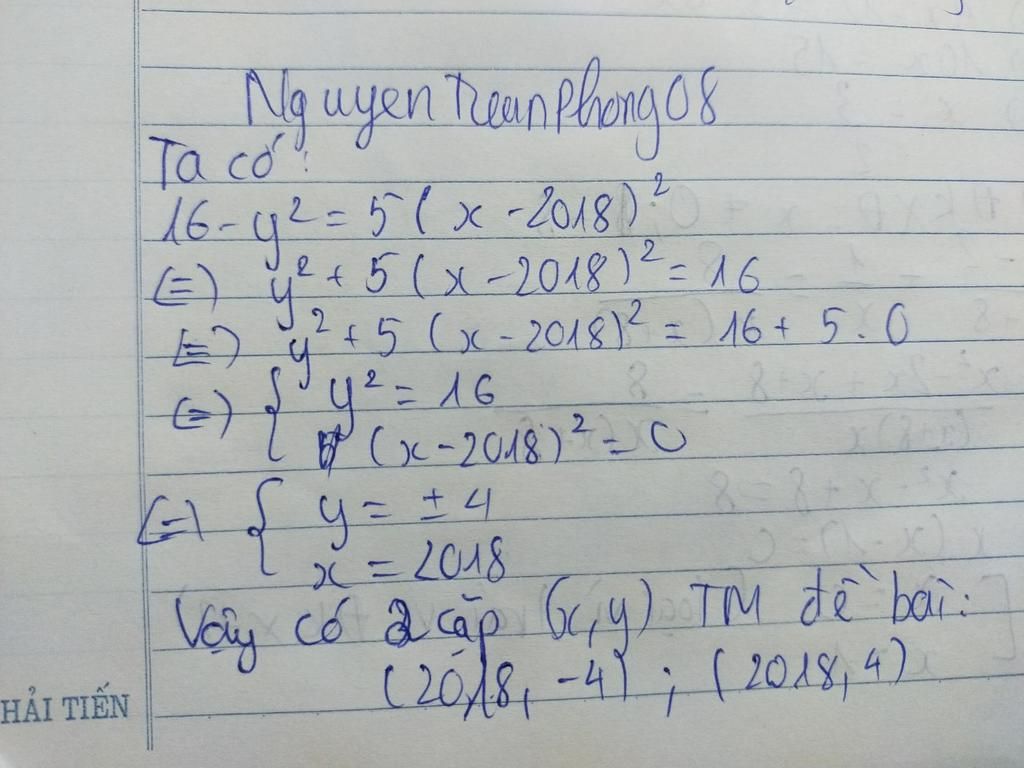 NguyenTranPhong08
Ta có:
16 - y² = 5(x - 2018)²
(=) y² + 5(x - 2018)² = 16
(=) y² + 5(x - 2018)² = 16 + 5.0
(=) { y² = 16
(x - 2018)² = 0
(=) { y = ± 4
x = 2018
Vậy có 2 cặp (x,y) TM đề bài:
(2018, -4) ; (2018, 4)
HẢI TIẾN